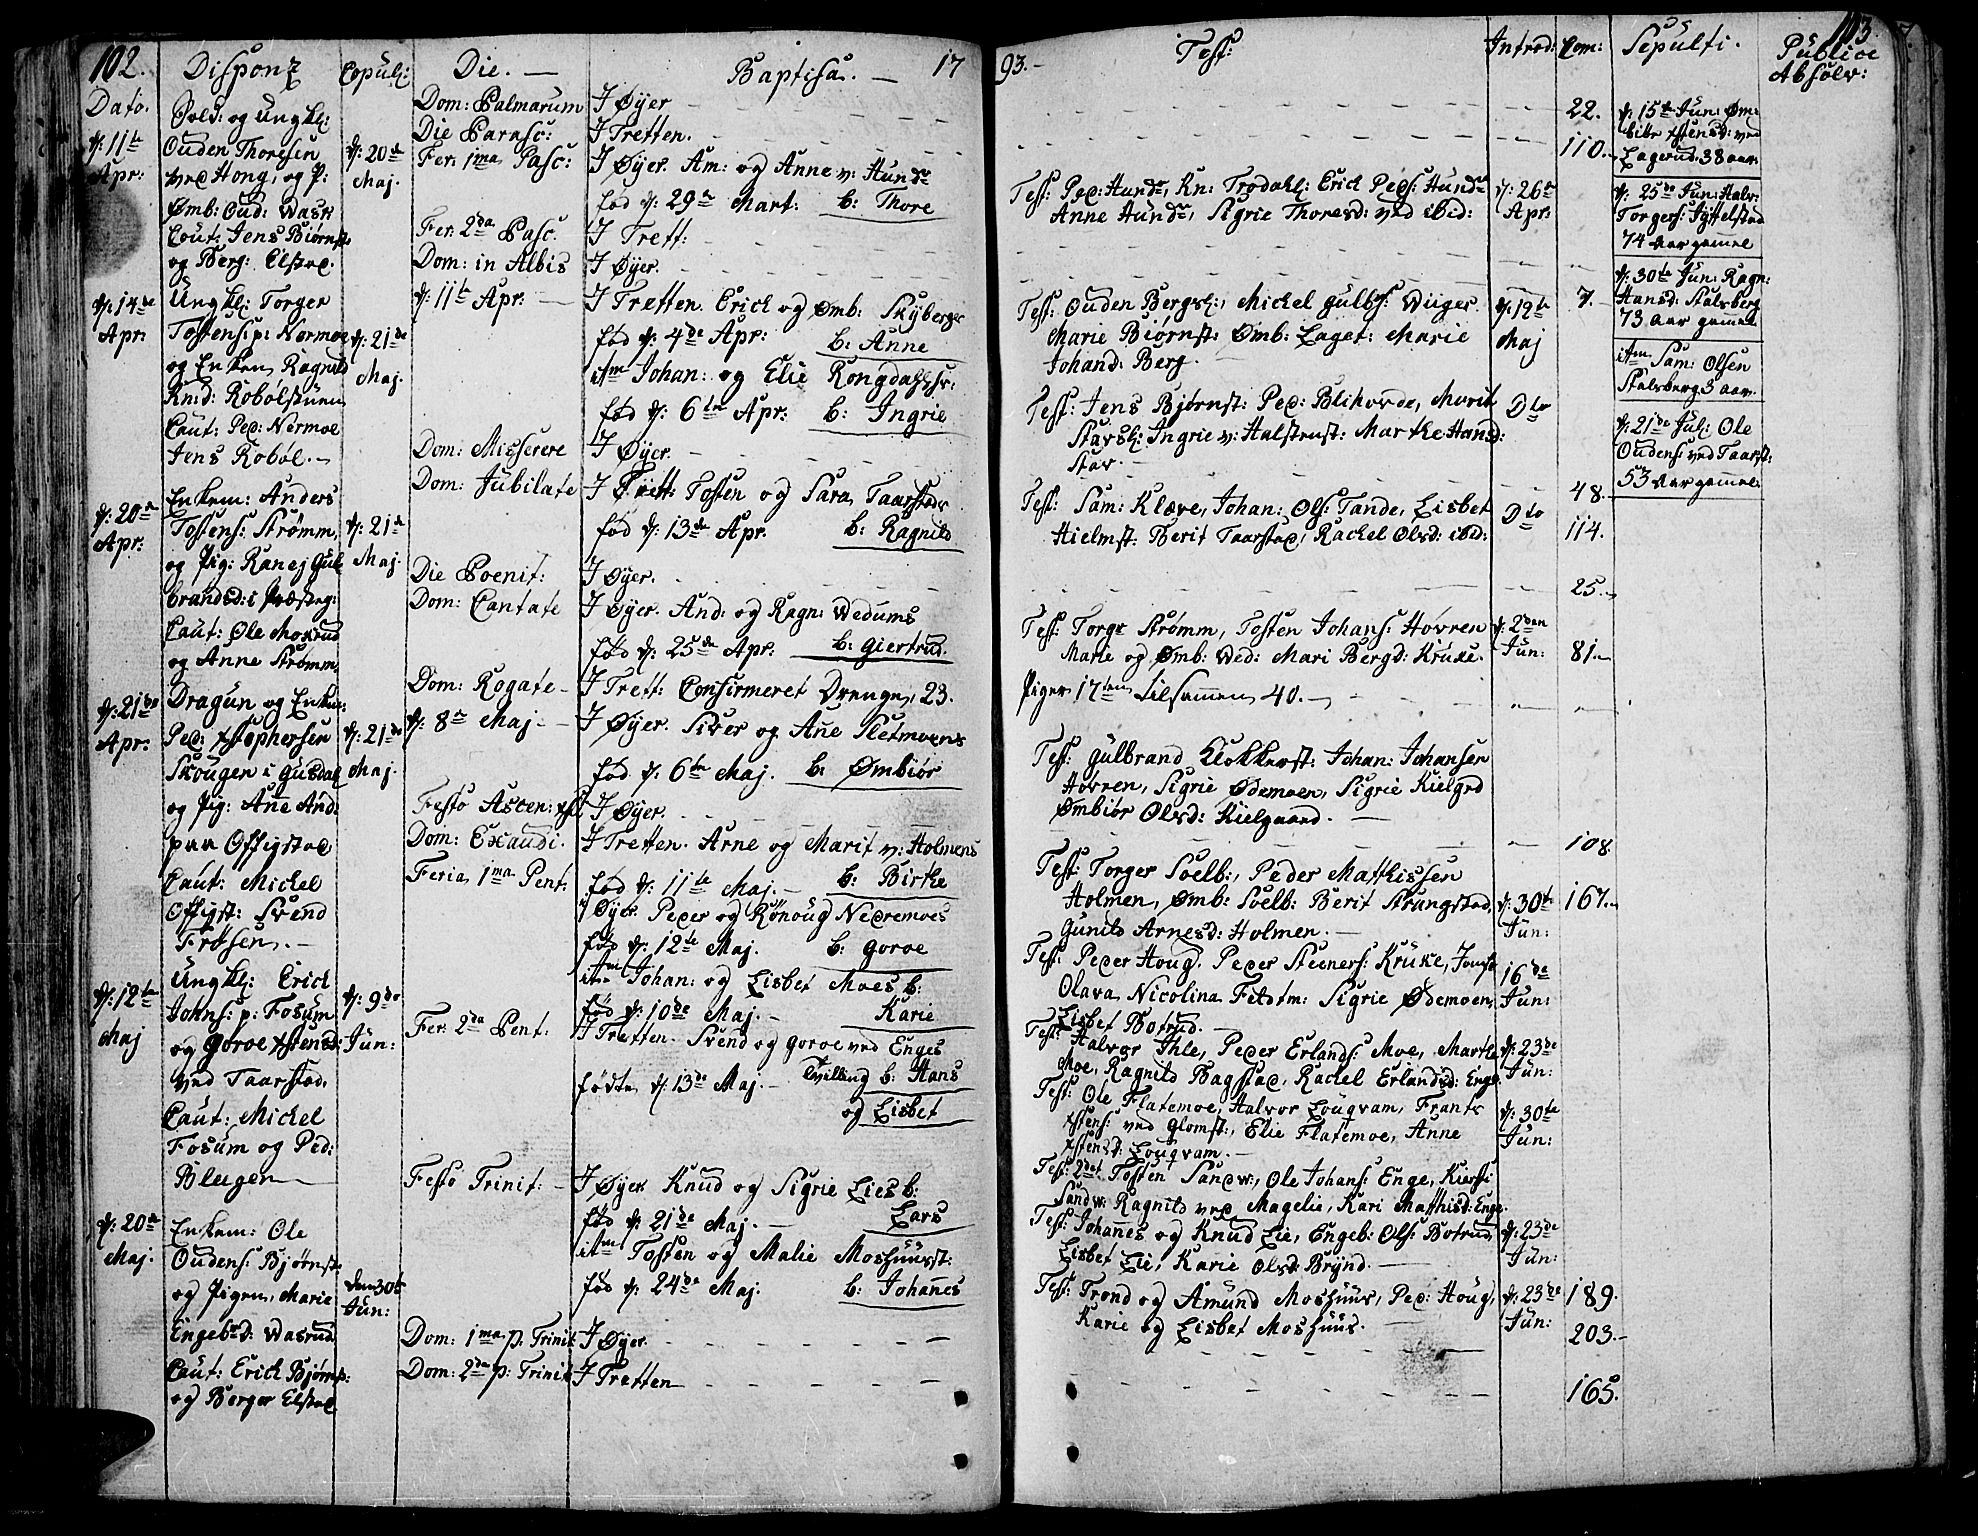 102.
Disponz
Copul:
Die. —
Baptisa. — 17
Dato.
d: 11te
Apr:
Sold: og Ungkl:
Ouden Thoresen
ved Hong, og P:
Ømb: Oud: Wasr
Caut: Jens Biørnst:
og Berg: Elstad.
d: 20de
Maj.
d: 14de
Apr:
Ungkl: Torger
Tostens: p: Nermoe
og Enken Ragnild
Knud: Robølstuen
Caut: Ped: Nermoe
Jens Robøl. —
d: 21de
Maj.
d: 20de
Apr:
Enkem: Anders
Tostens: Strømm,
og Pig: Ranej Gul-
brandsd: i Præsteg:
Caut: Ole Moxrud
og Anne Strømm,
d: 21de
Maj.
d: 21de
Apr:
Dragun og Enkm:
Ped: Xstophersen
Skougen i Gusdal
og Pig: Ane And:
paa Offigstad
Caut: Michel
Offigst: Svend
Frøsen. —
d: 21de
Maj.
d: 12te
Maj
Ungkl: Erich
Johns: p: Fosum
og Goroe Xstensd:
ved Taarstad.
Caut: Michel
Fosum og Ped:
Bleigen —
d: 9de
Jun:
d: 20de
Maj.
Enkem: Ole
Oudens: Bjørnst:
og Pigen, Marie
Engebrd: Wasrud
Caut: Erich Bjørnst:
og Berger Elstad
dem 30te
Jun:
Dom: Palmarum I Øyer —
Die Parasc: I Tretten. —
Fer: 1ma Pasc: I Øyer. Am: og Anne v: Hunde
fød d: 29de Mart: b: Thore
Fer: 2da Pasc: I Trett: —
Dom: in Albis I Øyer. —
d: 11te Apr. — I Tretten. Erich og Ømb: Skyberg
fød d: 4de Apr: b: Anne
itm Johan: og Elie Rongdahls:
fød d: 6te Apr: b: Ingrie
Dom: Misserere I Øyer. —
Dom: Jubilate I Trett: Tosten og Sara Taarstad
fød d: 13de Apr. b: Ragnild
Die Poenit: I Øyer. —
Dom: Cantate I Øyer. And: og Ragn: Wedums
fød d: 25de Apr. b: Giertrud.
Dom: Rogate — I Trett: Confirmeret Drenge, 23.
d: 8de Maj — I Øyer. Siver og Ane Sletmoens
fød d: 6te Maj. b: Ømbiør
Festo Ascen: Xsti I Øyer. —
Dom: Exaudi. I Tretten. Arne og Marit v: Holmens
fød d: 11te Maj. — b: Birthe
Feria 1ma Pent: I Øyer. Peder og Rønoug Nedremoes
fød d: 12te Maj. b: Goroe
itm Johan: og Lisbet Moes b:
fød d: 10de Maj. — Karie
Fer: 2da Pent: I Tretten. Svend og Goroe ved Enges
fødte d: 13de Maj. — Tvilling b: Hans
og Lisbet
Festo Trinit: — I Øyer Knud og Sigrie Lies b:
fød d: 21de Maj. — Lars
itm Tosten og Malie Moshuust:
fød d: 24de Maj. b: Johanes
Dom: 1ma p: Trinit I Øyer. —
Dom: 2da p: Trinit I Tretten —
93. —
103.
Test:
Introd:
Com:
Sepulti.
Publice
Absolv:
22.
110. —
Test: Ped: Hunde, Kn: Trodahl: Erich Peds: Hunde
Anne Hunde, Sigrie Thoresd: ved ibid:
d: 26de
Apr:
Test: Ouden Bergst:, Michel Gulbs: Wiiger.
Marie Biørnst: Ømb: Laget: Marie
Johand: Berg.
d: 12te
Maj
7. —
Test: Jens Bjørnst: Ped: Blihovde, Marit
Stavsl: Ingrie v: Halstenst: Marthe Hansd:
Stav. —
Dto
48. —
Test: Sam: Klæve, Johan: Ols: Tande, Lisbet
Hielmst: Berit Taarstad, Rachel Olsd: ibid:
Dto
114.
25. —
Test: Torgr Strømm, Tosten Johans: Hovren
Marie og Ømb: Wed: Mari Bergd: Kruke.
d: 2den
Jun:
81. —
Piger 17ten tilsammen 40. —
Test: Gulbrand Klokkerst: Johan: Johansen
Hovren, Sigrie Ødemoen, Sigrie Kielgrd
Ømbiør Olsd: Kielgaard. —
108.
Test: Torger Soelb:, Peder Matthissen
Holmen, Ømb: Soelb: Berit Strangstad,
Gunild Arnesd: Holmen. —
d: 30te
Jun:
167. —
Test: Peder Houg, Peder Steners: Kruke, Jomfr
Olava Nicolina Feltm: Sigrie Ødemoen,
Lisbet Botrud. —
16de
Jun:
Test: Halvor Ihle, Peder Erlands: Moe, Marthe
Moe, Ragnild Bagstad, Rachel Erlandsd: Enge.
d: 23de
Jun:
Test: Ole Flatemoe, Halvor Lougvam, Frants
Xstens: ved Glomst:, Elie Flatemoe, Anne
Xstensd: Lougvam. —
d: 30te
Jun:
Test: 2det Tosten Sandw:, Ole Johans: Enge, Kiersti
Sandw: Ragnild ved Magelie, Kari Matthisd: Enge.
Test: Johanes og Knud Lie, Engeb: Ols: Botrud,
Lisbet Lie, Karie Olsd: Brynd. —
d: 23de
Jun:
Test: Trond og Amund Moshuus, Ped: Houg,
Karie og Lisbet Moshuus. —
d: 23de
Jun:
189.
203. —
165.
d: 15de Jun: Øm-
biør Xstensd: ved
Lagerud. 38 aar.
d: 25de Jun: Halv:
Torgers: Jyttelstad
74 aar gamel
d: 30te Jun: Ragn:
Hansd: Stalsberg
73 aar gammel
itm Sam: Olsen
Stalsberg 3 aar.
d: 21de Jul: Ole
Oudens: ved Taarst:
53 aar gamel